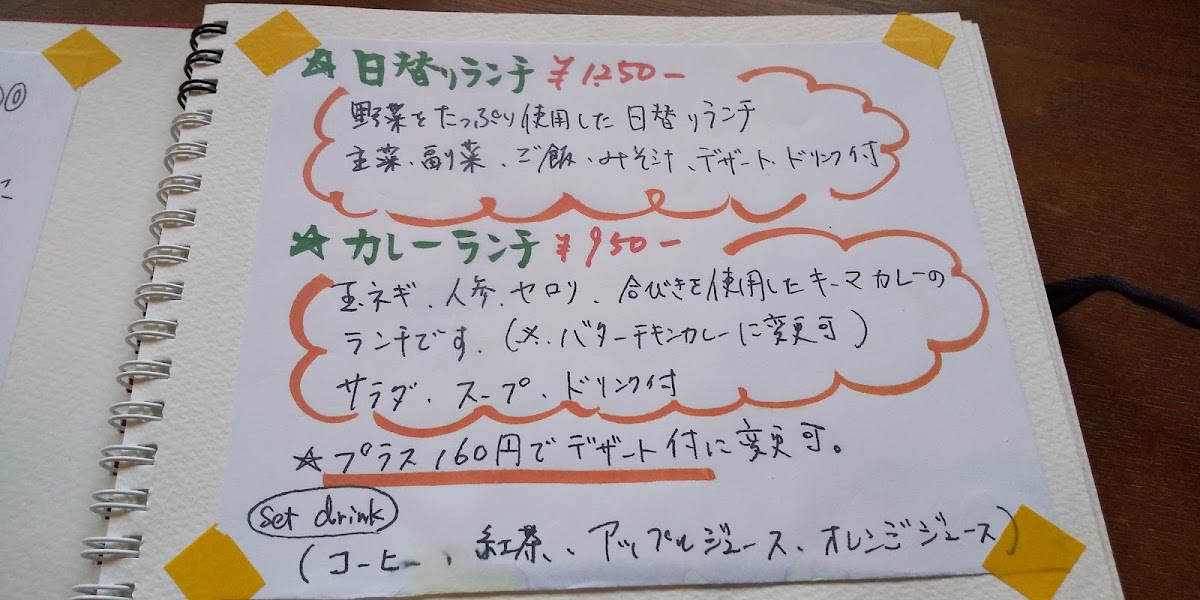 ◎
に
☆日替りランチ ¥1,250-
野菜をたっぷり使用した日替りランチ
主菜、副菜、ご飯、みそ汁、デザート、ドリンク付
☆カレーランチ ¥950-
玉ネギ、人参、セロリ、合びきを使用したキーマカレーの
ランチです。(※.バターチキンカレーに変更可)
サラダ、スープ、ドリンク付
☆プラス160円でデザート付に変更可。
Set drink
(コーヒー、紅茶、アップルジュース、オレンジジュース)